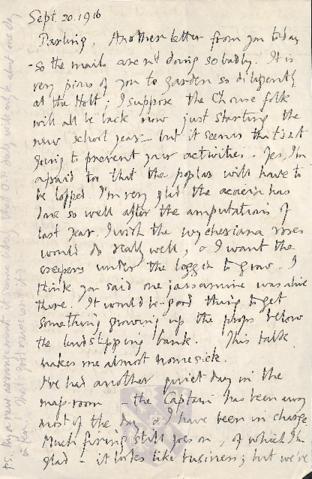 Sept 20. 1916
Darling, Another letter from you today
- so the mails aren't doing so badly. It is
very pious of you to garden so diligently
at the Holt; I suppose the folk
will all be back now just starting the
new school year - but it seems that isn't
going to prevent your activities. Yes, I'm
afraid too that the poplar will have to
be lopped. I'm very glad the acacia has
done so well after the amputations of
last year. I wish the wichuraiana roses
would do really well, & I want the
creepers under the loggia to grow. I
think you said one jassamine was alive
there. It would be a good thing to get
something growing up the props below
the landslipping bank. This talk
makes me almost homesick.
I've had another quiet day in the
map-room - the Captain has been away
most of the day & I have been in charge.
Much firing still goes on, of which I'm
glad - it looks like business; but we've
P.S.